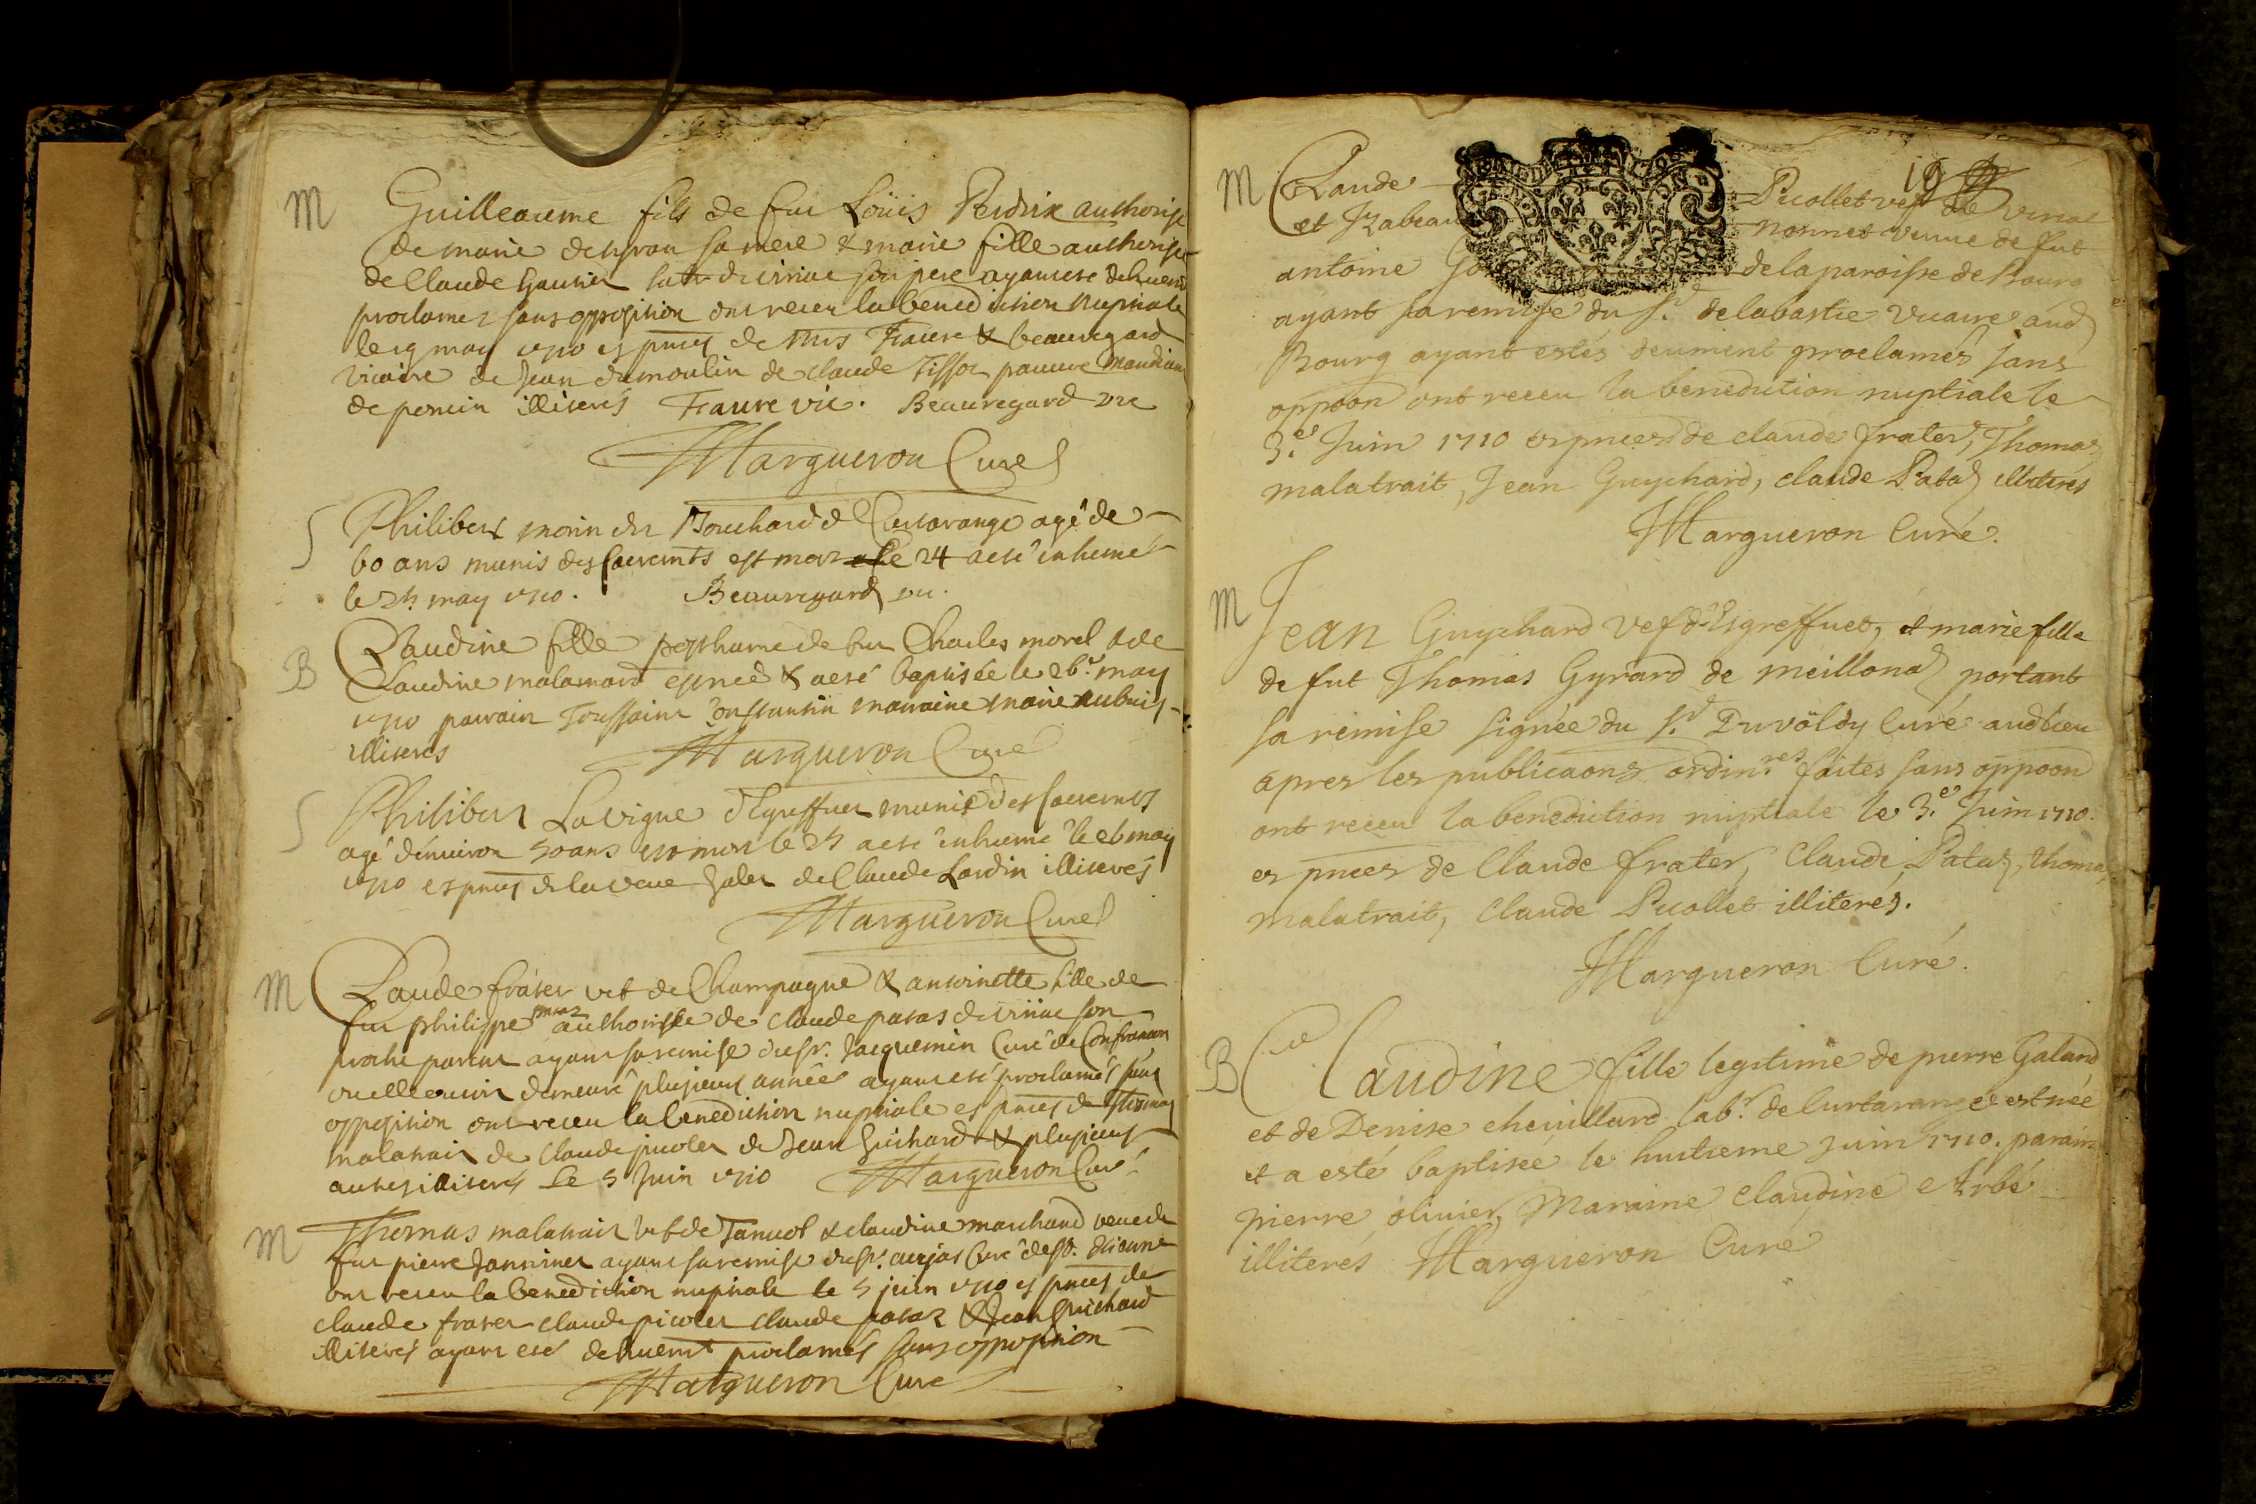 M
Guilleaume fils de fut Loüis Perdrix authorisé
de marie sa mere & marie fille authorisée
de Claude Gautier son pere ayant esté dehuemt
proclamez sans opposition ont receu la benediction nuptiale
le 19 may 1710 es pnces de Mrs Faure & beauregard
vicaire de Jean dumoulin de claude Tissot pauvre mandiant
de poncin illiterés Faure vic. Beauregard vic
Margueron Curé
S
Philibert morin du Bouchard d Curtarange agé de
60 ans munis des sacremts est mort le 24 a eté inhumé
le 25 may 1710. Beauregard vic.
B
Claudine fille posthume de fut Charles morel & de
Claudine malamard est née & a eté baptisée le 26e may
1710 parrain Toussaint Constantin marraine marie
illiterés Margueron Curé
S
Philibert Lavigne d'Egreffuet munis des sacremts
agé d'environ 50 ans est mort le 25 a eté inhumé le 26 may
1710 es pnces de la veve de Claude Lardin illiterés
Margueron Curé
M
Claude frater vef de Champagne & antoinette fille de
fut philippe patas authorisée de claude patas de viriat son
proche parent ayant sa remise du sr. Jacquemin Curé de Confrancon
ou elle avoit demeuré plusieurs années ayant eté proclamés sans
opposition ont receu la benediction nuptiale es pnces de Thomas
malatrait de Claude picolet de Jean Guichard & plusieurs
autres illiterés Le 3 Juin 1710 Margueron Curé
M
Thomas malatrait vef de Tanvol & claudine marchand veve de
fut pierre Janninet ayant sa remise du sr. curé de st. Etienne
ont receu la benediction nuptiale le 3 juin 1710 es pnces de
claude frater claude picolet claude patas & Jean Guichard
illiterés ayant eté dehuemt proclamés sans opposition
Margueron Curé
19
M
Claude Picollet vef de viriat
et Izabeau nonnet veuve de fut
antoine de la paroisse de Bourg
ayant sa remise du sr. de labastie vicaire aud
Bourg ayant estés deument proclamés sans
oppoon ont receu la benediction nuptiale le
3.e Juin 1710 es pnces de claude frater, Thomas
malatrait, Jean Guychard, claude Patas illiterés
Margueron Curé.
M
Jean Guychard vef d'Esgreffuet, et marie fille
de fut Thomas Gyrard de meillonas portant
sa remise signée du sr. Duvöldy curé aud lieu
apres les publicaons ordin.res faites sans oppoon
ont receu la benediction nuptiale le 3.e Juin 1710.
es pnces de Claude frater, Claude Patas, thomas
malatrait, Claude Picollet illiterés.
Margueron Curé.
B
Claudine fille legitime de pierre Galand
et de Denise chevillard lab.r de Curtarange est née
et a esté baptisée le huitieme Juin 1710. parain
pierre olivier, Maraine claudine Arbé
illiterés Margueron Curé